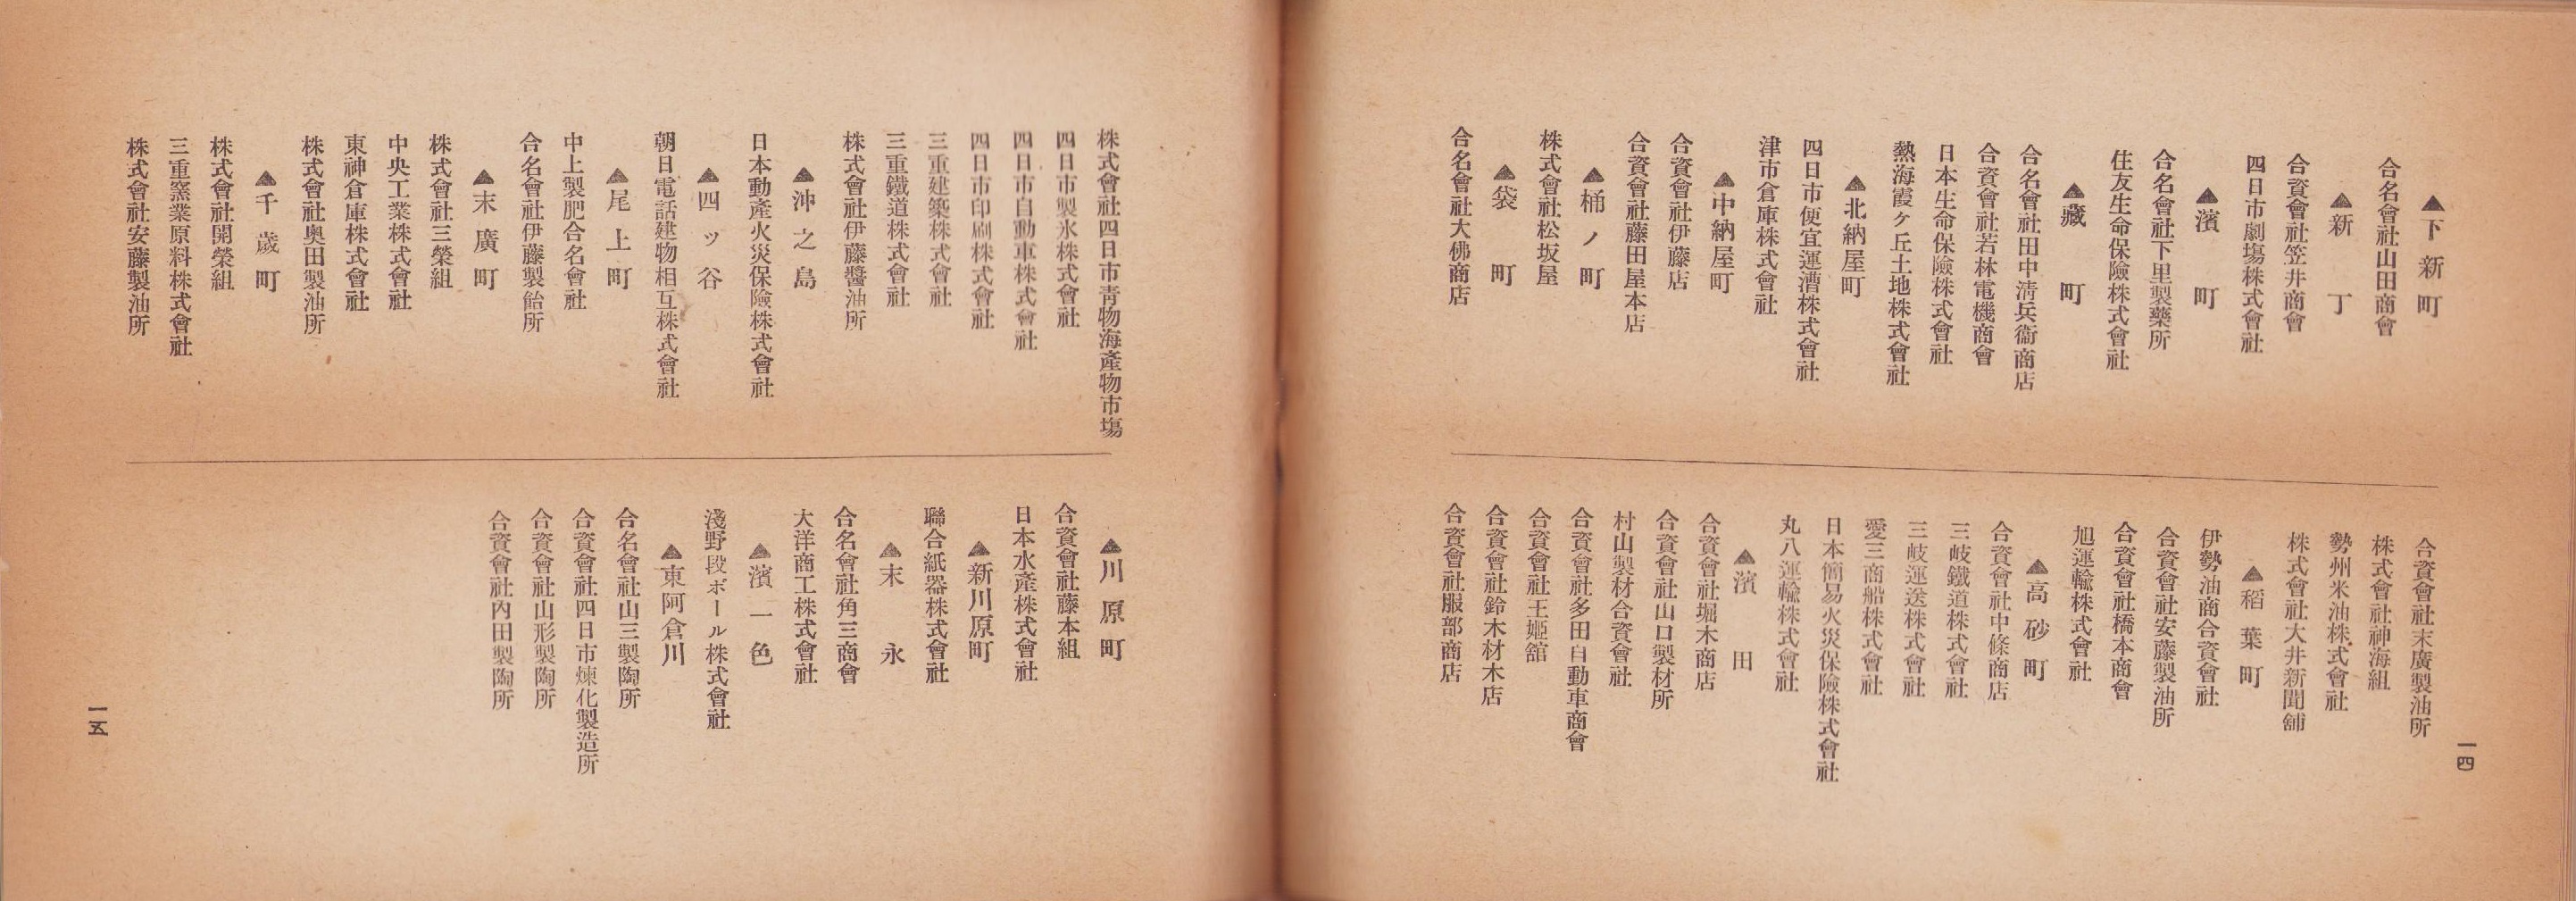 ▲下新町
合名會社山田商會
▲新丁
合資會社笠井商會
四日市劇場株式會社
▲濱町
合名會社下里製藥所
住友生命保險株式會社
▲藏町
合名會社田中淸兵衞商店
合資會社若林電機商會
日本生命保險株式會社
熱海霞ケ丘土地株式會社
▲北納屋町
四日市便宜運漕株式會社
津市倉庫株式會社
▲中納屋町
合資會社伊藤店
合資會社藤田屋本店
▲桶ノ町
株式會社松坂屋
▲袋町
合名會社大佛商店
合資會社末廣製油所
株式會社神海組
勢州米油株式會社
株式會社大井新聞舖
▲稻葉町
伊勢油商合資會社
合資會社安藤製油所
合資會社橋本商會
旭運輸株式會社
▲高砂町
合資會社中條商店
三岐鐵道株式會社
三岐運送株式會社
愛三商船株式會社
日本簡易火災保險株式會社
丸八運輸株式會社
▲濱田
合資會社堀木商店
合資會社山口製材所
村山製材合資會社
合資會社多田自動車商會
合資會社王姬舘
合資會社鈴木材木店
合資會社服部商店
一四
株式會社四日市靑物海產物市場
四日市製氷株式會社
四日市自動車株式會社
四日市印刷株式會社
三重建築株式會社
三重鐵道株式會社
株式會社伊藤醬油所
▲沖之島
日本動產火災保險株式會社
▲四ッ谷
朝日電話建物相互株式會社
▲尾上町
中上製肥合名會社
合名會社伊藤製飴所
▲末廣町
株式會社三榮組
中央工業株式會社
東神倉庫株式會社
株式會社奧田製油所
▲千歲町
株式會社開榮組
三重窯業原料株式會社
株式會社安藤製油所
▲川原町
合資會社藤本組
日本水產株式會社
▲新川原町
聯合紙器株式會社
▲末永
合名會社角三商會
大洋商工株式會社
▲濱一色
淺野段ボール株式會社
▲東阿倉川
合名會社山三製陶所
合資會社四日市煉化製造所
合資會社山形製陶所
合資會社內田製陶所
一五